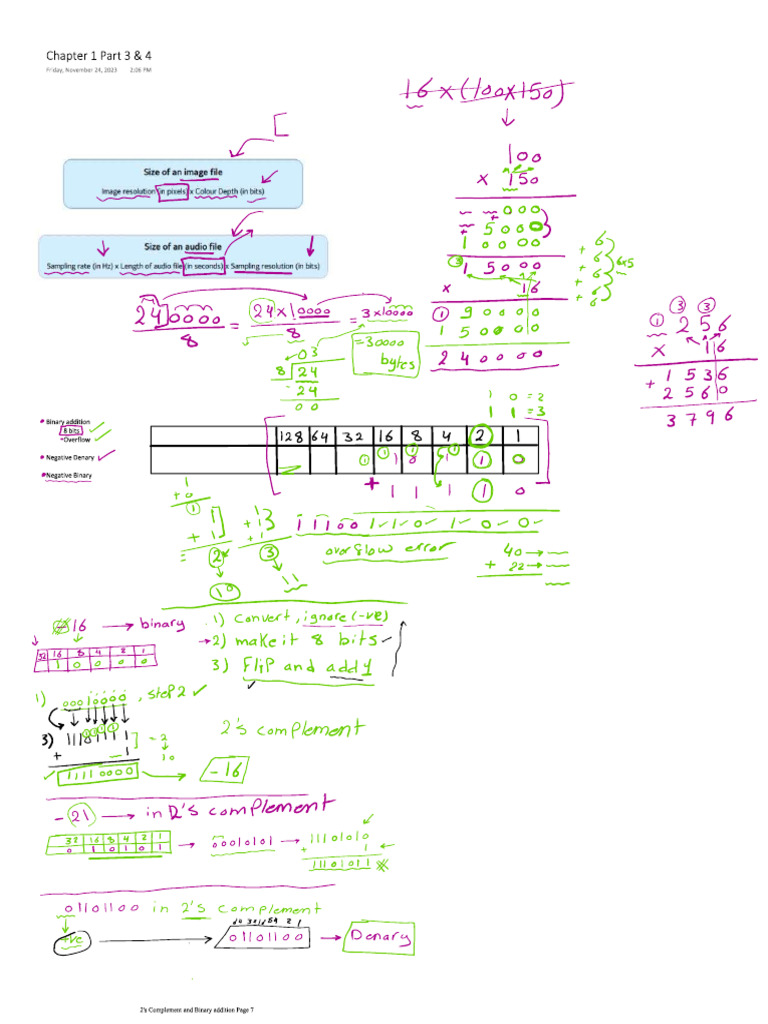 Chapter 1 Part 3 & 4
Friday, November 24, 2023 2:06 PM
16 x (100x150)
Size of an image file
Image resolution (in pixels) x Colour Depth (in bits)
100
x 150
000
5000
10000
15000
x 16
90000
150000
240000
6
+ 6
+ 6
+ 6
+ 6
6x5
Size of an audio file
Sampling rate (in Hz) x Length of audio file (in seconds) x Sampling resolution (in bits)
240000
8
=
24x10000
8
= 3x10000
= 30000
bytes
03
8 24
- 24
00
1 3 3
256
x 16
1536
+ 2560
3796
1 0 = 2
1 1 = 3
• Binary addition
8 bits
•Overflow
• Negative Denary
•Negative Binary
128 64 32 16 8 4 2 1
+ 1 1 1 1 0
1
+ 0
1
1
+ 1
= 2
10
1
+ 1
+ 1
3
11
overflow error
40
+ 22
-16 → binary
1) convert, ignore (-ve)
→2) make it 8 bits
3) Flip and add 1
32 16 8 4 2 1
1 0 0 0 0
1) 00010000, step 2 ✓
2's complement
3) 11101111
+ 1
11110000 → -16
- 2
10
- 21 → in 2's complement
32 16 8 4 2 1
0 1 0 1 0 1
→ 00010101 → 11101010
+ 1
11101011
01101100 in 2's complement
+ve → 01101100 → Denary
2's Complement and Binary addition Page 7